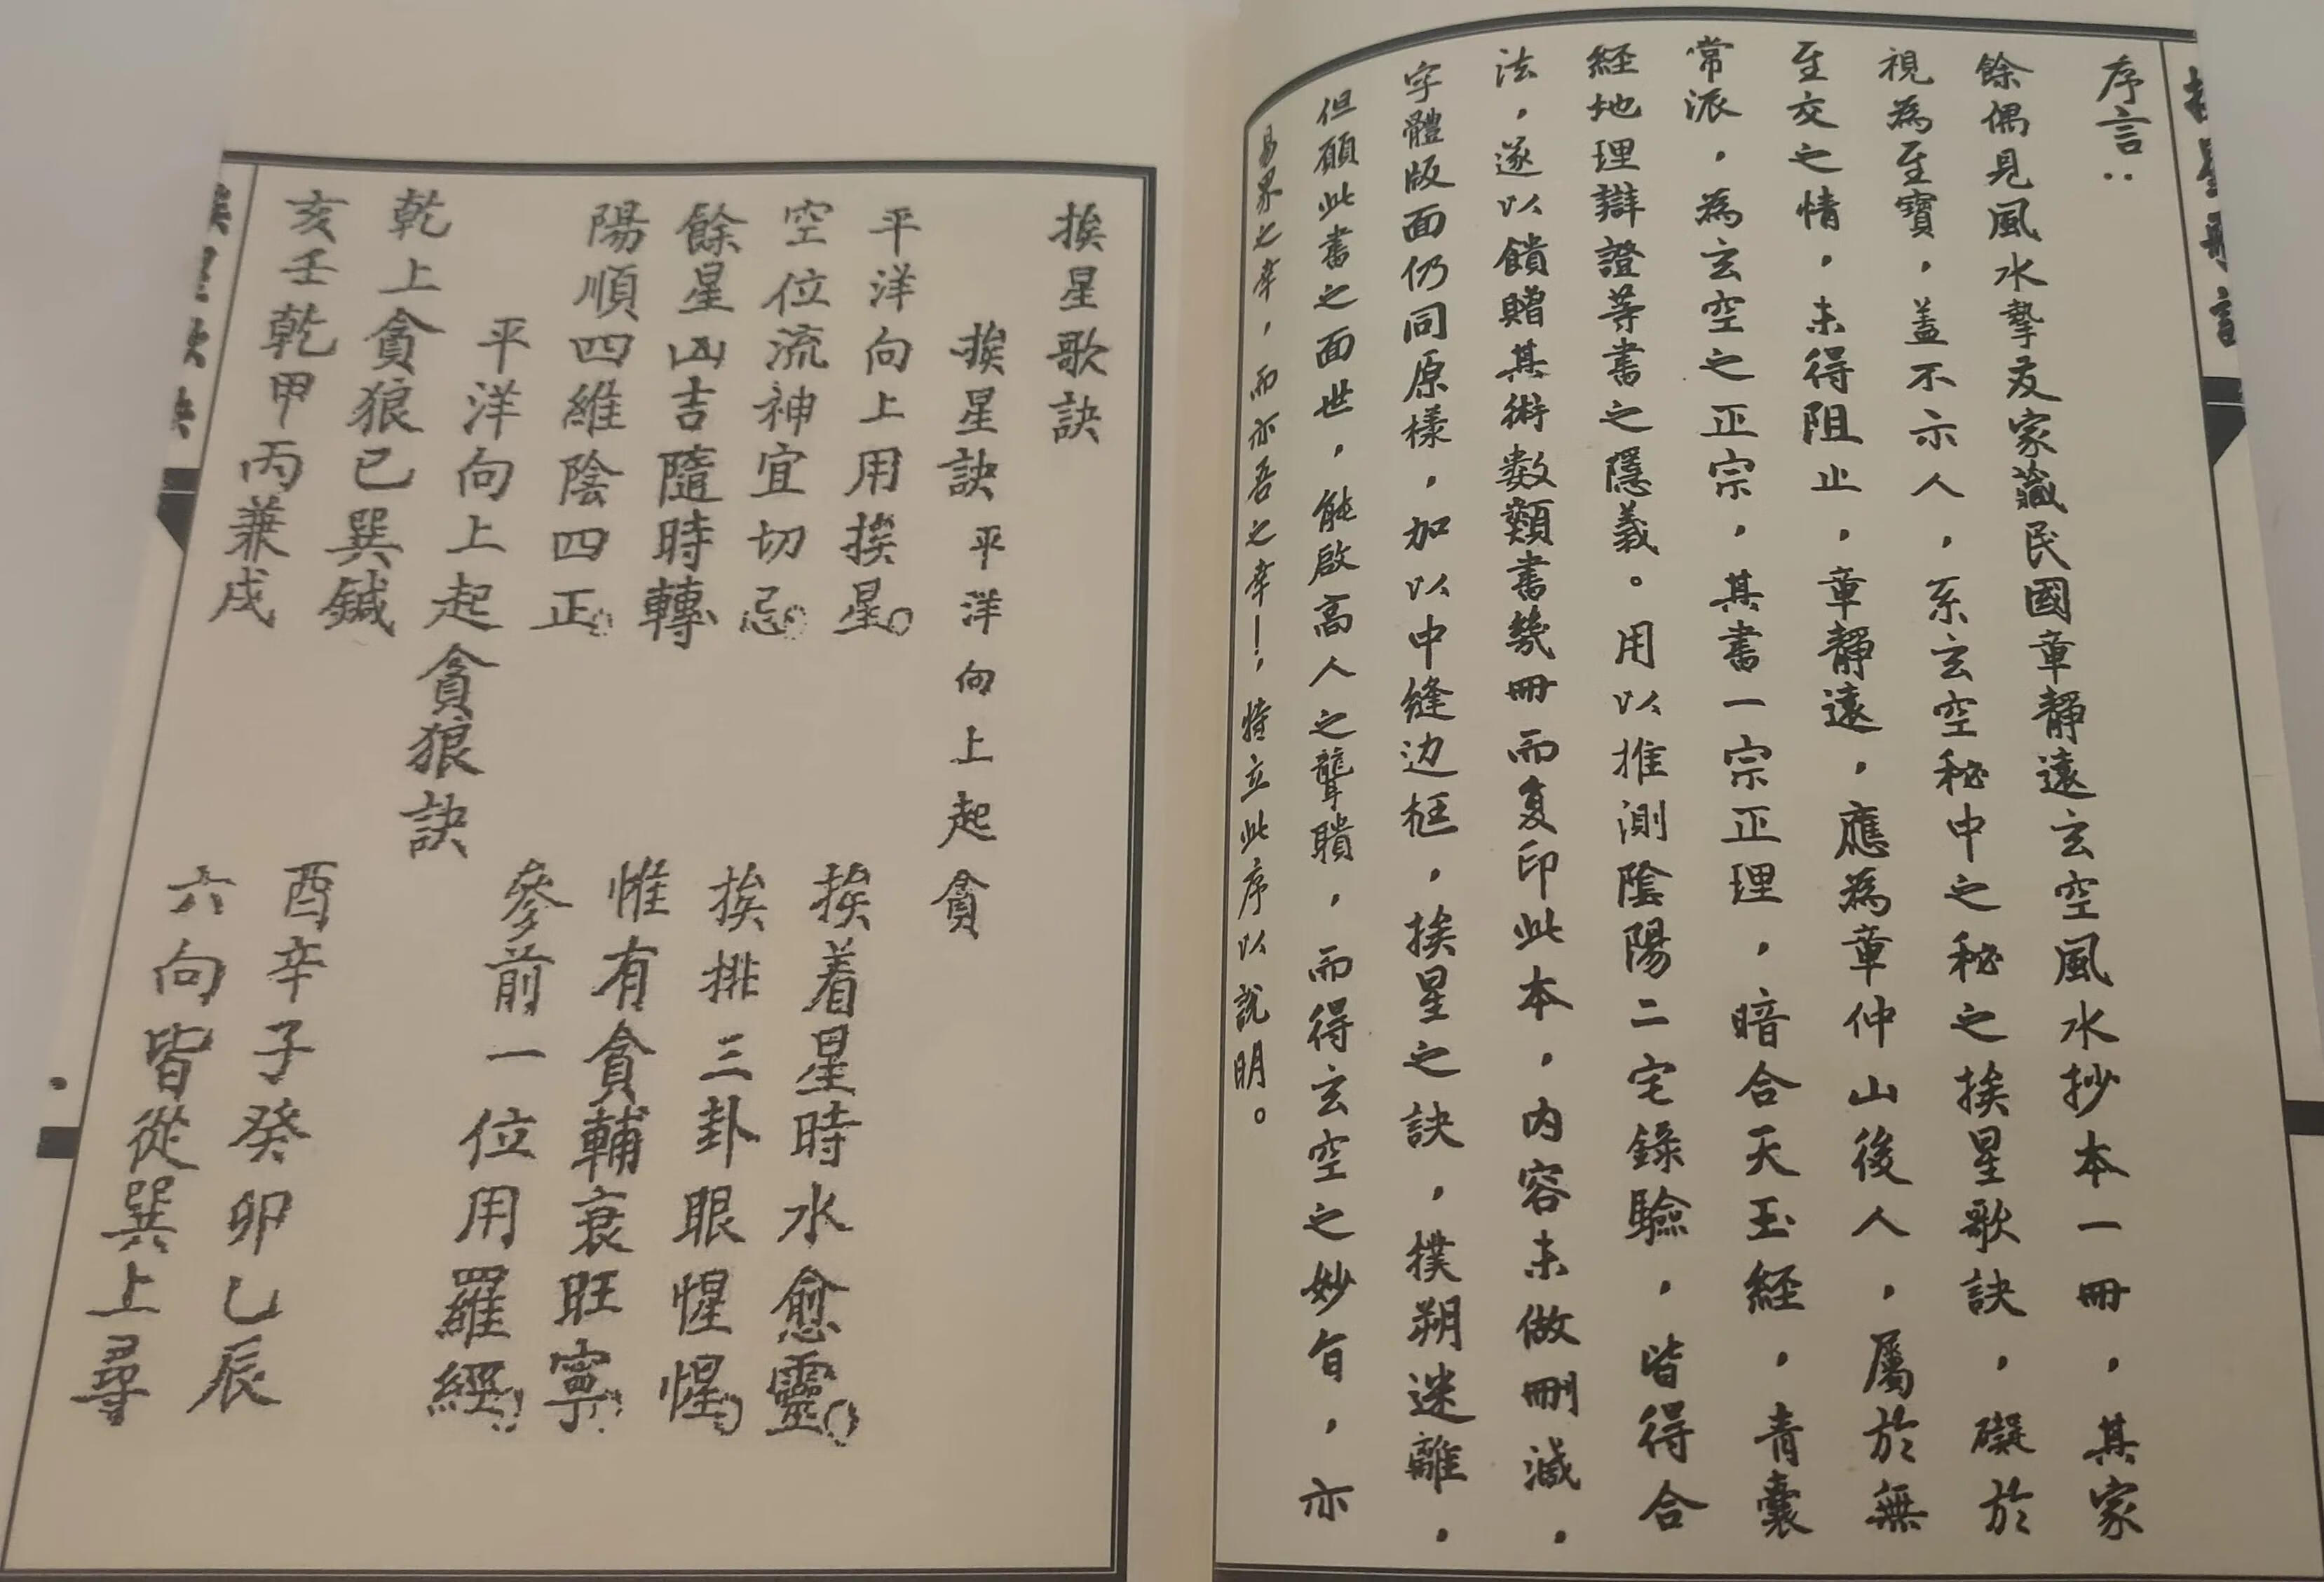 序言:
餘偶見風水摯友家藏民國章靜遠玄空風水抄本一冊，其家
視為至寶，盖不示人，系玄空秘中之秘之挨星歌訣，礙於
至交之情，未得阻止，章靜遠，應為章仲山後人，屬於無
常派，為玄空之正宗，其書一宗正理，暗合天玉經，青囊
経地理辯證等書之隱義。用以推測陰陽二宅錄驗，皆得合
法，遂以饋贈其術数類書幾冊而复印此本，内容未做刪減，
字體版面仍同原樣，加以中縫边框，挨星之訣，樸朔迷離，
但願此書之面世，能啟高人之聾聵，而得玄空之妙旨，亦
易界之幸，而亦吾之幸!，特立此序以說明。
挨星歌訣
挨星訣 平洋向上起貪
平洋向上用挨星。 挨着星時水愈靈。
空位流神宜切忌。 挨排三卦眼惺惺。
餘星凶吉隨時轉 惟有貪輔衰旺寧。
陽順四維陰四正。 參前一位用羅經。
平洋向上起貪狼訣
乾上貪狼已巽鍼 酉辛子癸卯乙辰
亥壬乾甲丙兼戌 六向皆從巽上尋